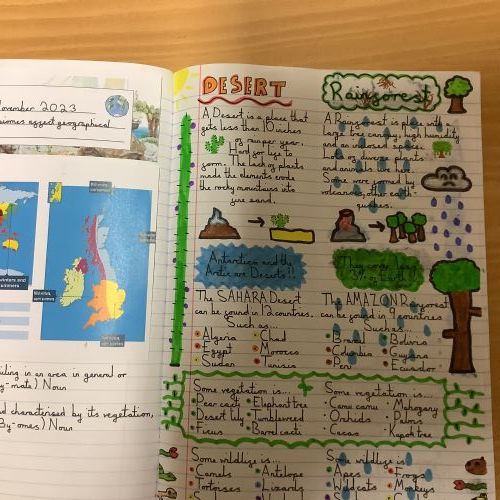 November 2023
biomes affect geographical
winters and
summers
ailing in an area in general or
Noun
d characterised by its vegetation,
Noun
DESERT
A Desert is a place that
gets less than 10 inches
of rain per year.
Hard for life to
form. The lack of plants
made the elements erode
the rocky mountains into
fine sand.
Antarctica and the
Arctic are Deserts!!
The SAHARA Desert
can be found in 12 countries.
Such as...
Algeria
Chad
Egypt
Morocco
Sudan
Tunisia
Some vegetation is...
Pear cacti
Elephant tree
Desert lily
Tumbleweed
Ficus
Barrel cacti
Some wildlife is...
Camels
Antelope
Tortoises
Lizards
Rainforest
A Rainforest is place with
large tree canopy, high humidity
and an indoored space.
Lots of diverse plants
and animals live here.
Some were formed by
volcanoes, other earth-
quakes.
They cover
The AMAZON Rainforest
can be found in 9 countries
Such as...
Brazil
Bolivia
Colombia
Guyana
Peru
Ecuador
Some vegetation is...
Camu camu
Mahogany
Orchids
Palms
Cacao
Kapok tree
Some wildlife is
Apes
Frogs
Wildcats
Monkeys